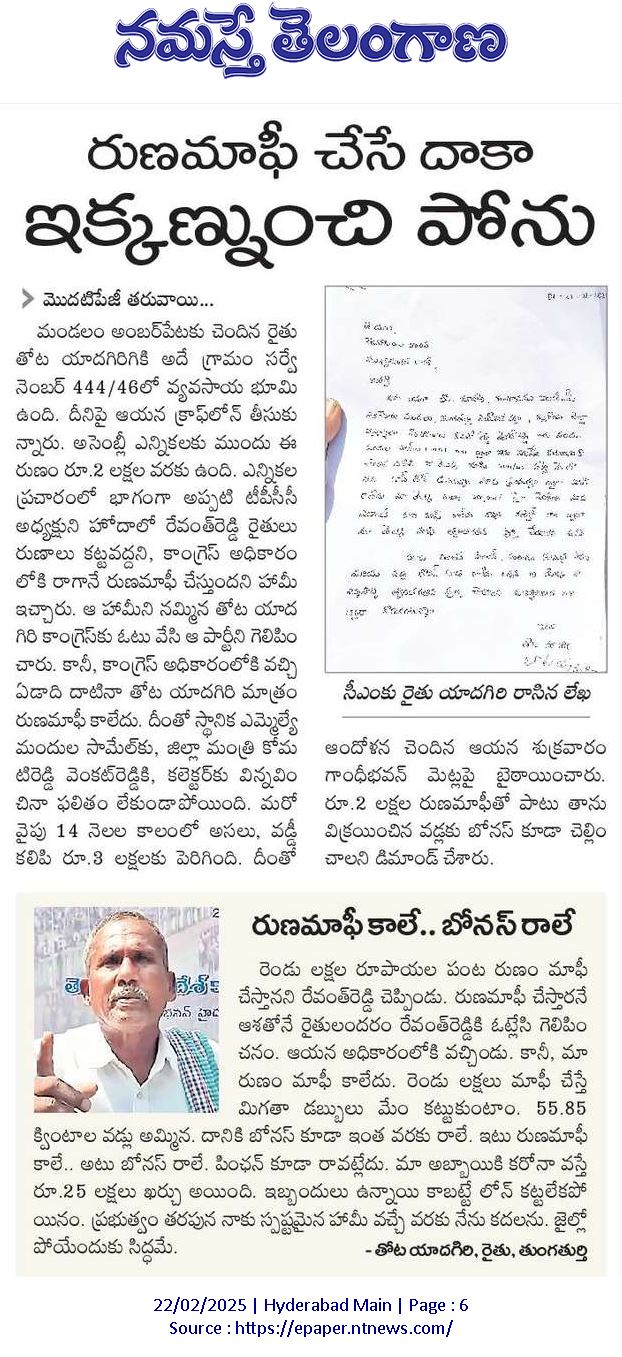 నమస్తే తెలంగాణ
రుణమాఫీ చేసే దాకా
ఇక్కణ్నుంచి పోను
మొదటిపేజీ తరువాయి...
మండలం అంబర్‌పేటకు చెందిన రైతు
తోట యాదగిరిగికి అదే గ్రామం సర్వే
నెంబర్ 444/46లో వ్యవసాయ భూమి
ఉంది. దీనిపై ఆయన క్రాఫ్‌లోన్ తీసుకు
న్నారు. అసెంబ్లీ ఎన్నికలకు ముందు ఈ
రుణం రూ.2 లక్షల వరకు ఉంది. ఎన్నికల
ప్రచారంలో భాగంగా అప్పటి టీపీసీసీ
అధ్యక్షుని హోదాలో రేవంత్‌రెడ్డి రైతులు
రుణాలు కట్టవద్దని, కాంగ్రెస్ అధికారం
లోకి రాగానే రుణమాఫీ చేస్తుందని హామీ
ఇచ్చారు. ఆ హామీని నమ్మిన తోట యాద
గిరి కాంగ్రెస్‌కు ఓటు వేసి ఆ పార్టీని గెలిపిం
చారు. కానీ, కాంగ్రెస్ అధికారంలోకి వచ్చి
ఏడాది దాటినా తోట యాదగిరి మాత్రం
రుణమాఫీ కాలేదు. దీంతో స్థానిక ఎమ్మెల్యే
మందుల సామేల్‌కు, జిల్లా మంత్రి కోమ
టిరెడ్డి వెంకట్‌రెడ్డికి, కలెక్టర్‌కు విన్నవిం
చినా ఫలితం లేకుండాపోయింది. మరో
వైపు 14 నెలల కాలంలో అసలు, వడ్డీ
కలిపి రూ.3 లక్షలకు పెరిగింది. దీంతో
సీఎంకు రైతు యాదగిరి రాసిన లేఖ
ఆందోళన చెందిన ఆయన శుక్రవారం
గాంధీభవన్ మెట్లపై బైఠాయించారు.
రూ.2 లక్షల రుణమాఫీతో పాటు తాను
విక్రయించిన వడ్లకు బోనస్ కూడా చెల్లిం
చాలని డిమాండ్ చేశారు.
రుణమాఫీ కాలే.. బోనస్ రాలే
రెండు లక్షల రూపాయల పంట రుణం మాఫీ
చేస్తానని రేవంత్‌రెడ్డి చెప్పిండు. రుణమాఫీ చేస్తారనే
ఆశతోనే రైతులందరం రేవంత్‌రెడ్డికి ఓట్లేసి గెలిపిం
చనం. ఆయన అధికారంలోకి వచ్చిండు. కానీ, మా
రుణం మాఫీ కాలేదు. రెండు లక్షలు మాఫీ చేస్తే
మిగతా డబ్బులు మేం కట్టుకుంటాం. 55.85
క్వింటాల వడ్లు అమ్మిన. దానికి బోనస్ కూడా ఇంత వరకు రాలే. ఇటు రుణమాఫీ
కాలే.. అటు బోనస్ రాలే. పింఛన్ కూడా రావట్లేదు. మా అబ్బాయికి కరోనా వస్తే
రూ.25 లక్షలు ఖర్చు అయింది. ఇబ్బందులు ఉన్నాయి కాబట్టే లోన్ కట్టలేకపో
యినం. ప్రభుత్వం తరపున నాకు స్పష్టమైన హామీ వచ్చే వరకు నేను కదలను. జైల్లో
పోయేందుకు సిద్ధమే.
- తోట యాదగిరి, రైతు, తుంగతుర్తి
22/02/2025 | Hyderabad Main | Page : 6
Source : https://epaper.ntnews.com/